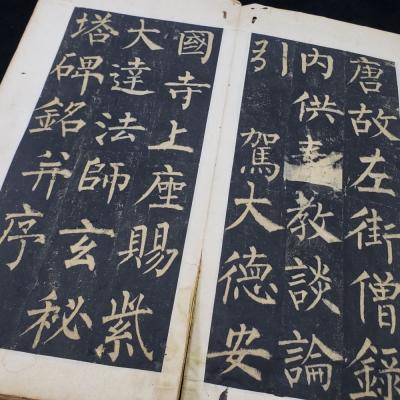 唐故左街僧録
内供教談論
引駕大德安
國寺上座賜紫
大達法師玄秘
塔碑銘并序